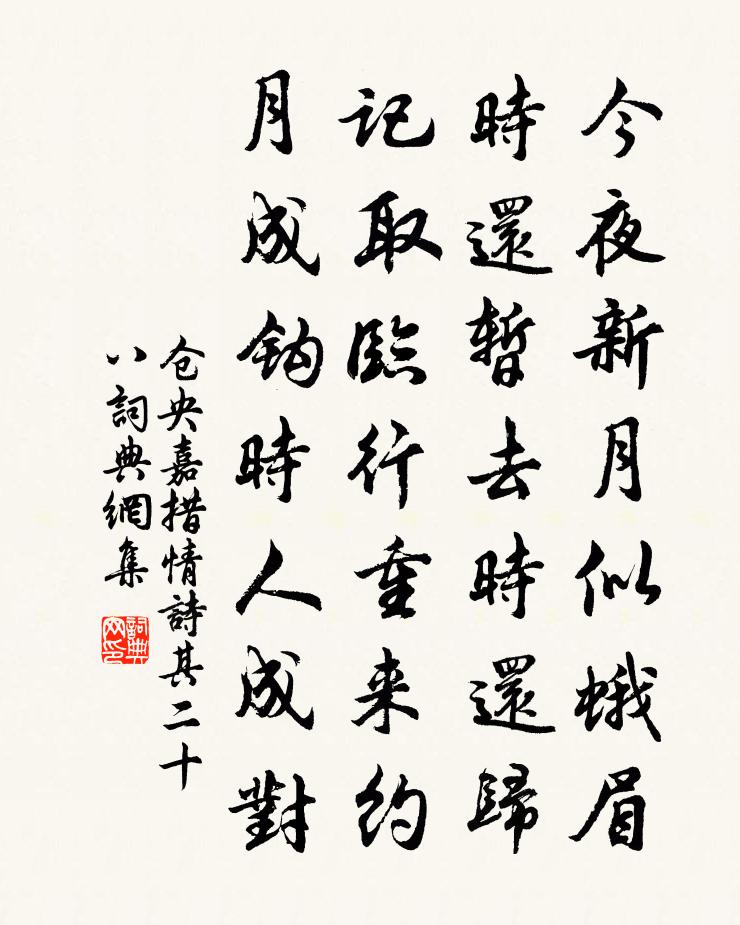 今夜新月似蛾眉
時還暫去時還歸
記取臨行重来約
月成鈎時人成對
仓央嘉措情詩其二十
八詞典網集
詞典
网印